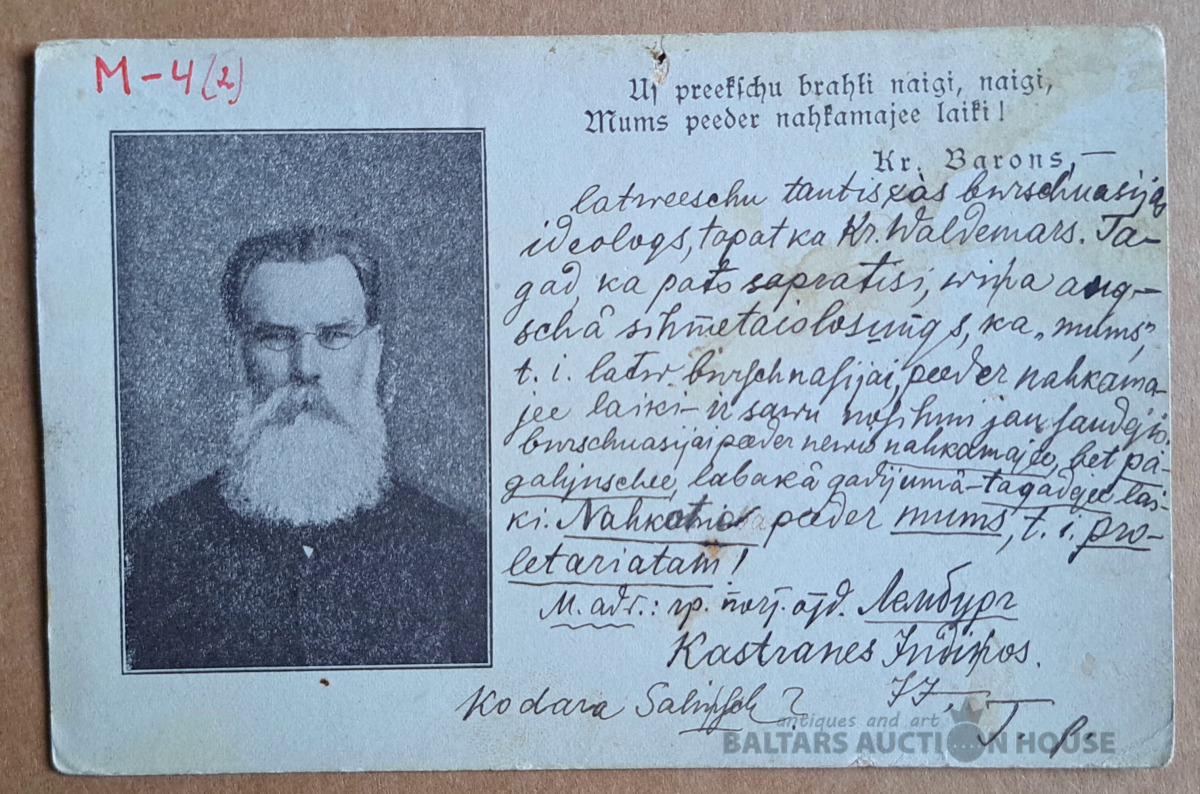 M-4(2)
Us preekschu brahli naigi, naigi,
Mums peeder nahkamajee laiki!
Kr. Barons,—
latweeschu tautiskas burschuasijas
ideologs, tapat ka Kr. Waldemars. Ta-
gad, ka pats sapratisi, wiņa aug-
schâ
ka „mums”,
t. i. latw. burschuasijai, peeder nahkama-
jee laiki – ir sawu jau
burschuasijai peeder newis nahkamajee, bet pa-
galijnschee, labakâ gadijumâ – tagadejee lai-
ki. peeder mums, t. i. pro-
letariatam!
M. adr.: Лембург
Kastranes
Ko dara
antiques and art
BALTARS AUCTION HOUSE